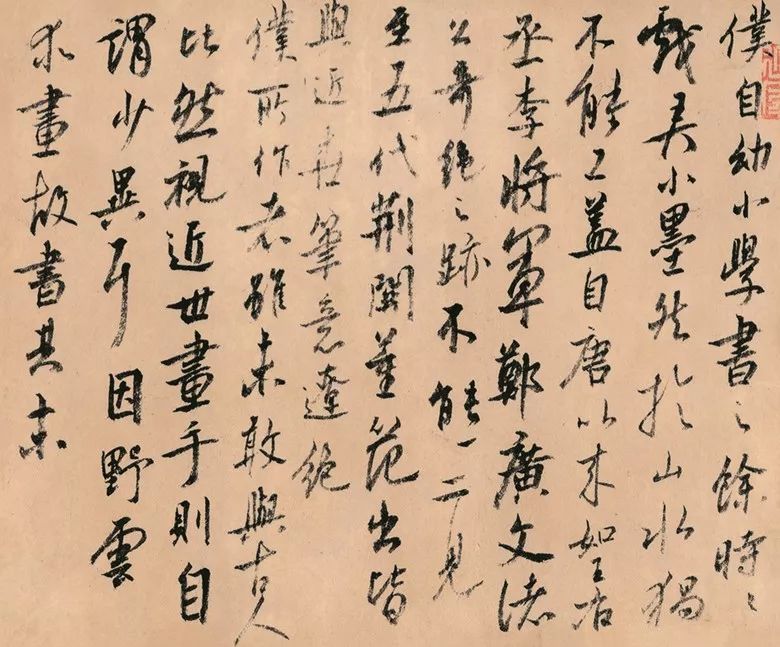 僕自幼小學書之餘時時
戲弄小墨然於山水獨
不能工蓋自唐以來如王右
丞李將軍鄭廣文諸
公奇絕之跡不能一二見
至五代荊關董范出皆
與近世筆意遼絕
僕所作者雖未敢與古人
比然視近世畫手則自
謂少異耳因野雲
求畫故書其末